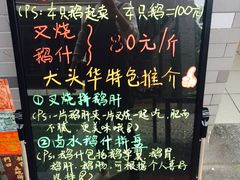 (PS: 本只鹅起卖 本只鹅=100元)
叉烧
鹅什
} 80元/斤
大头华特色推介
①叉烧拼鹅肝
(PS: 一片鹅肝夹一片叉烧一起吃, 肥而不腻, 更美味哦!)
②卤水鹅什拼盘
(PS: 鹅什包括鹅掌翼、鹅胃
鹅肝、鹅肠, 可根据个人喜好